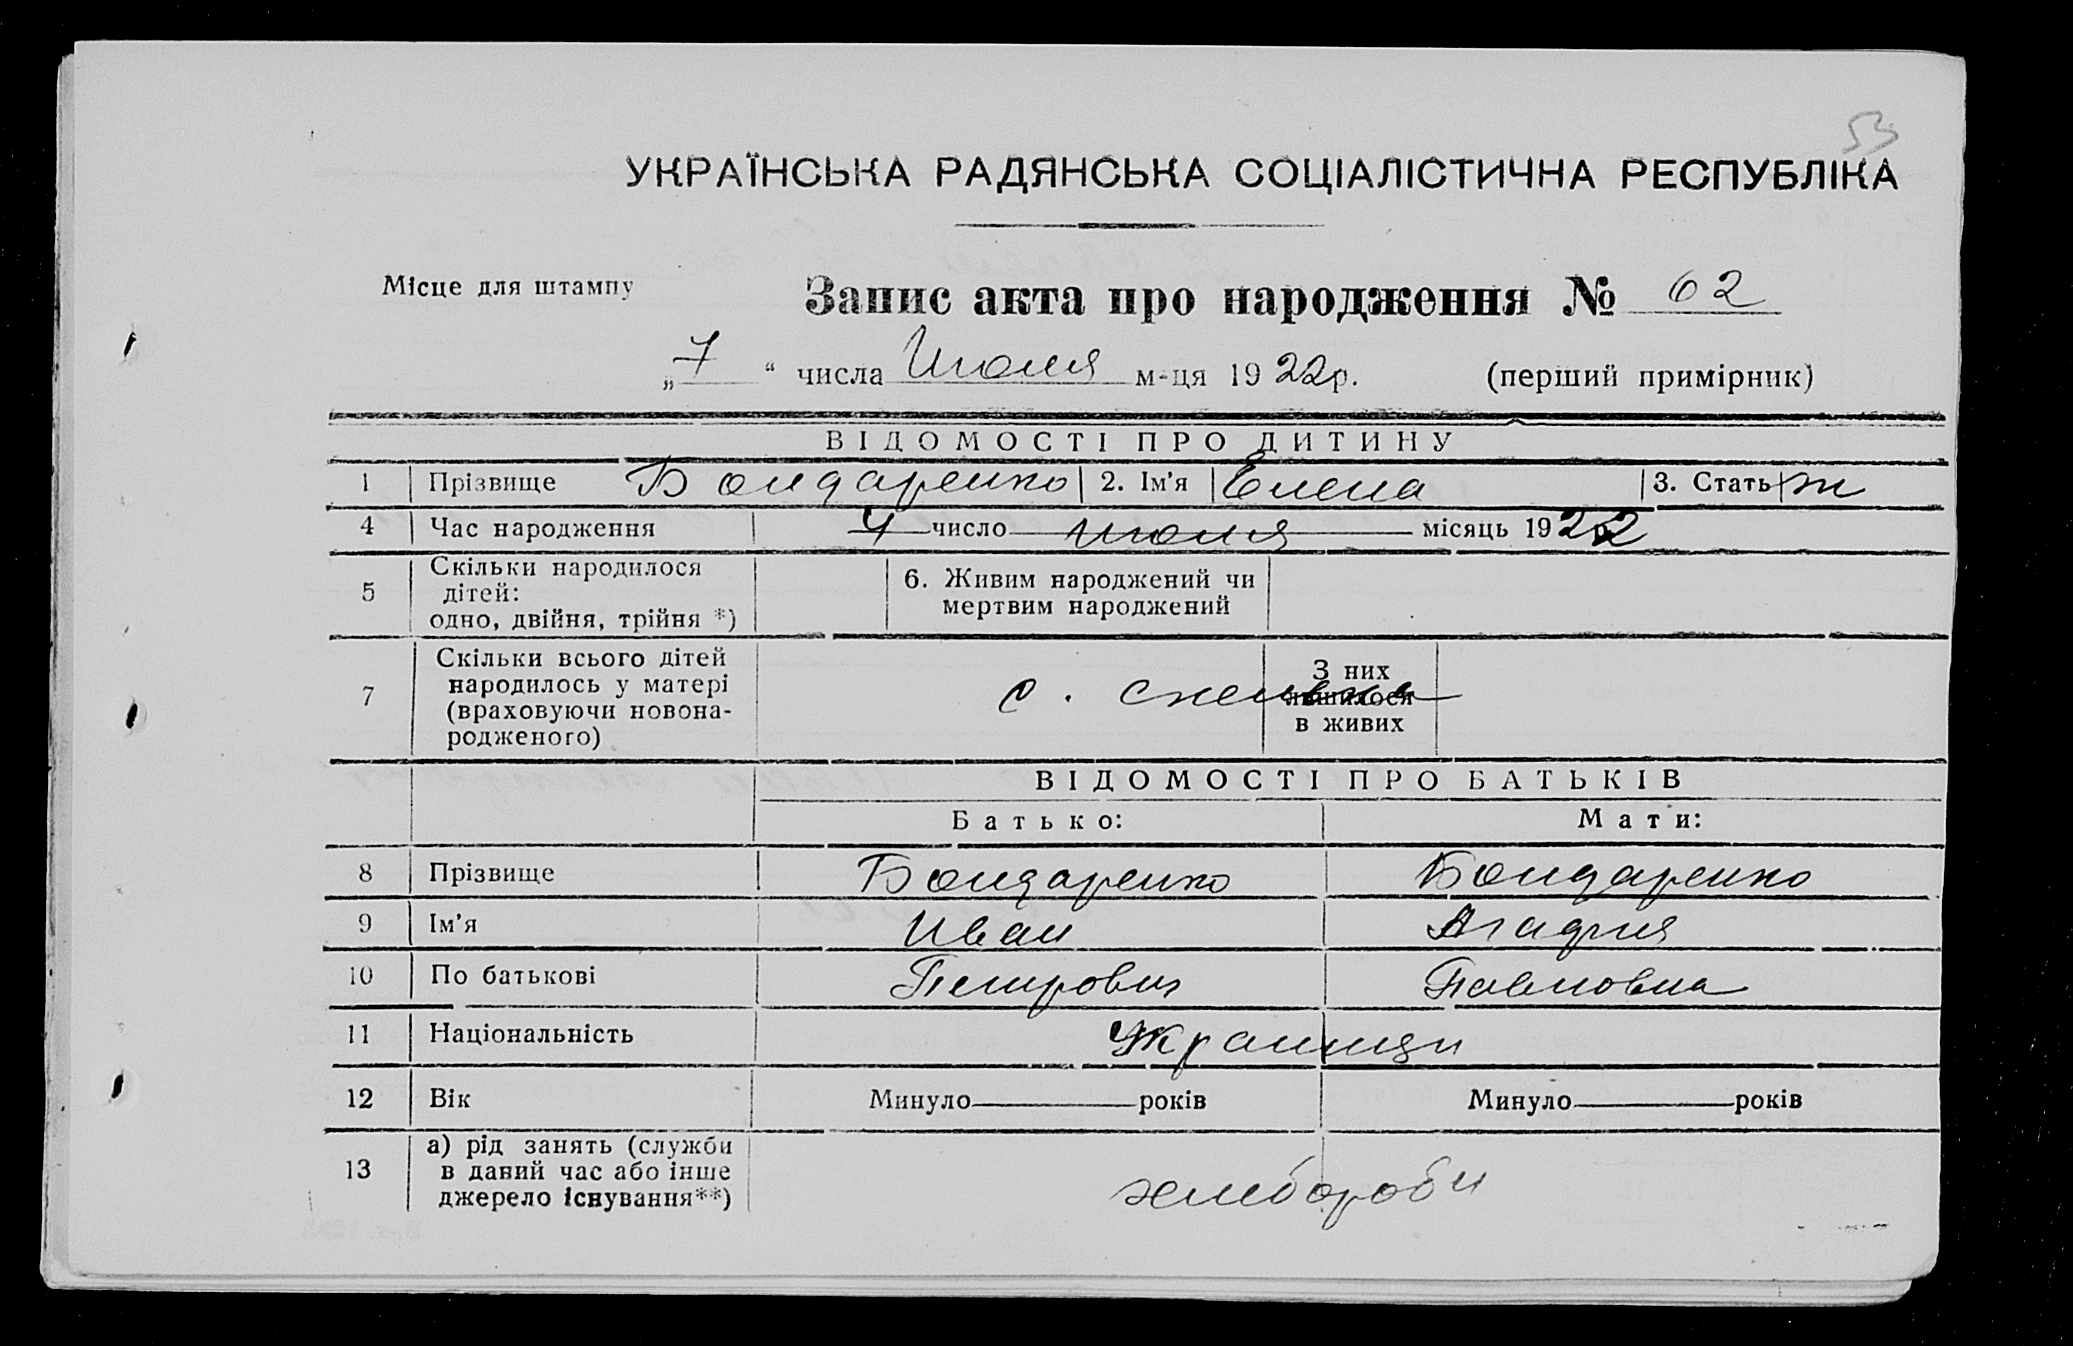 53
УКРАЇНСЬКА РАДЯНСЬКА СОЦІАЛІСТИЧНА РЕСПУБЛІКА
Місце для штампу
Запис акта про народження № 62
„ 7 “ числа Июля м-ця 19 22р. (перший примірник)
ВІДОМОСТІ ПРО ДИТИНУ
1 Прізвище Бондаренко 2. Ім'я Елена 3. Стать ж
4 Час народження 4 число июля місяць 1922
5 Скільки народилося дітей: одно, двійня, трійня *) 6. Живим народжений чи мертвим народжений
7 Скільки всього дітей народилось у матері (враховуючи новонародженого) с. З них лишилося в живих
ВІДОМОСТІ ПРО БАТЬКІВ
Батько: Мати:
8 Прізвище Бондаренко Бондаренко
9 Ім'я Иван Агафия
10 По батькові Петрович Павловна
11 Національність Украинци
12 Вік Минуло років Минуло років
13 а) рід занять (служби в даний час або інше джерело існування**) хлебороби